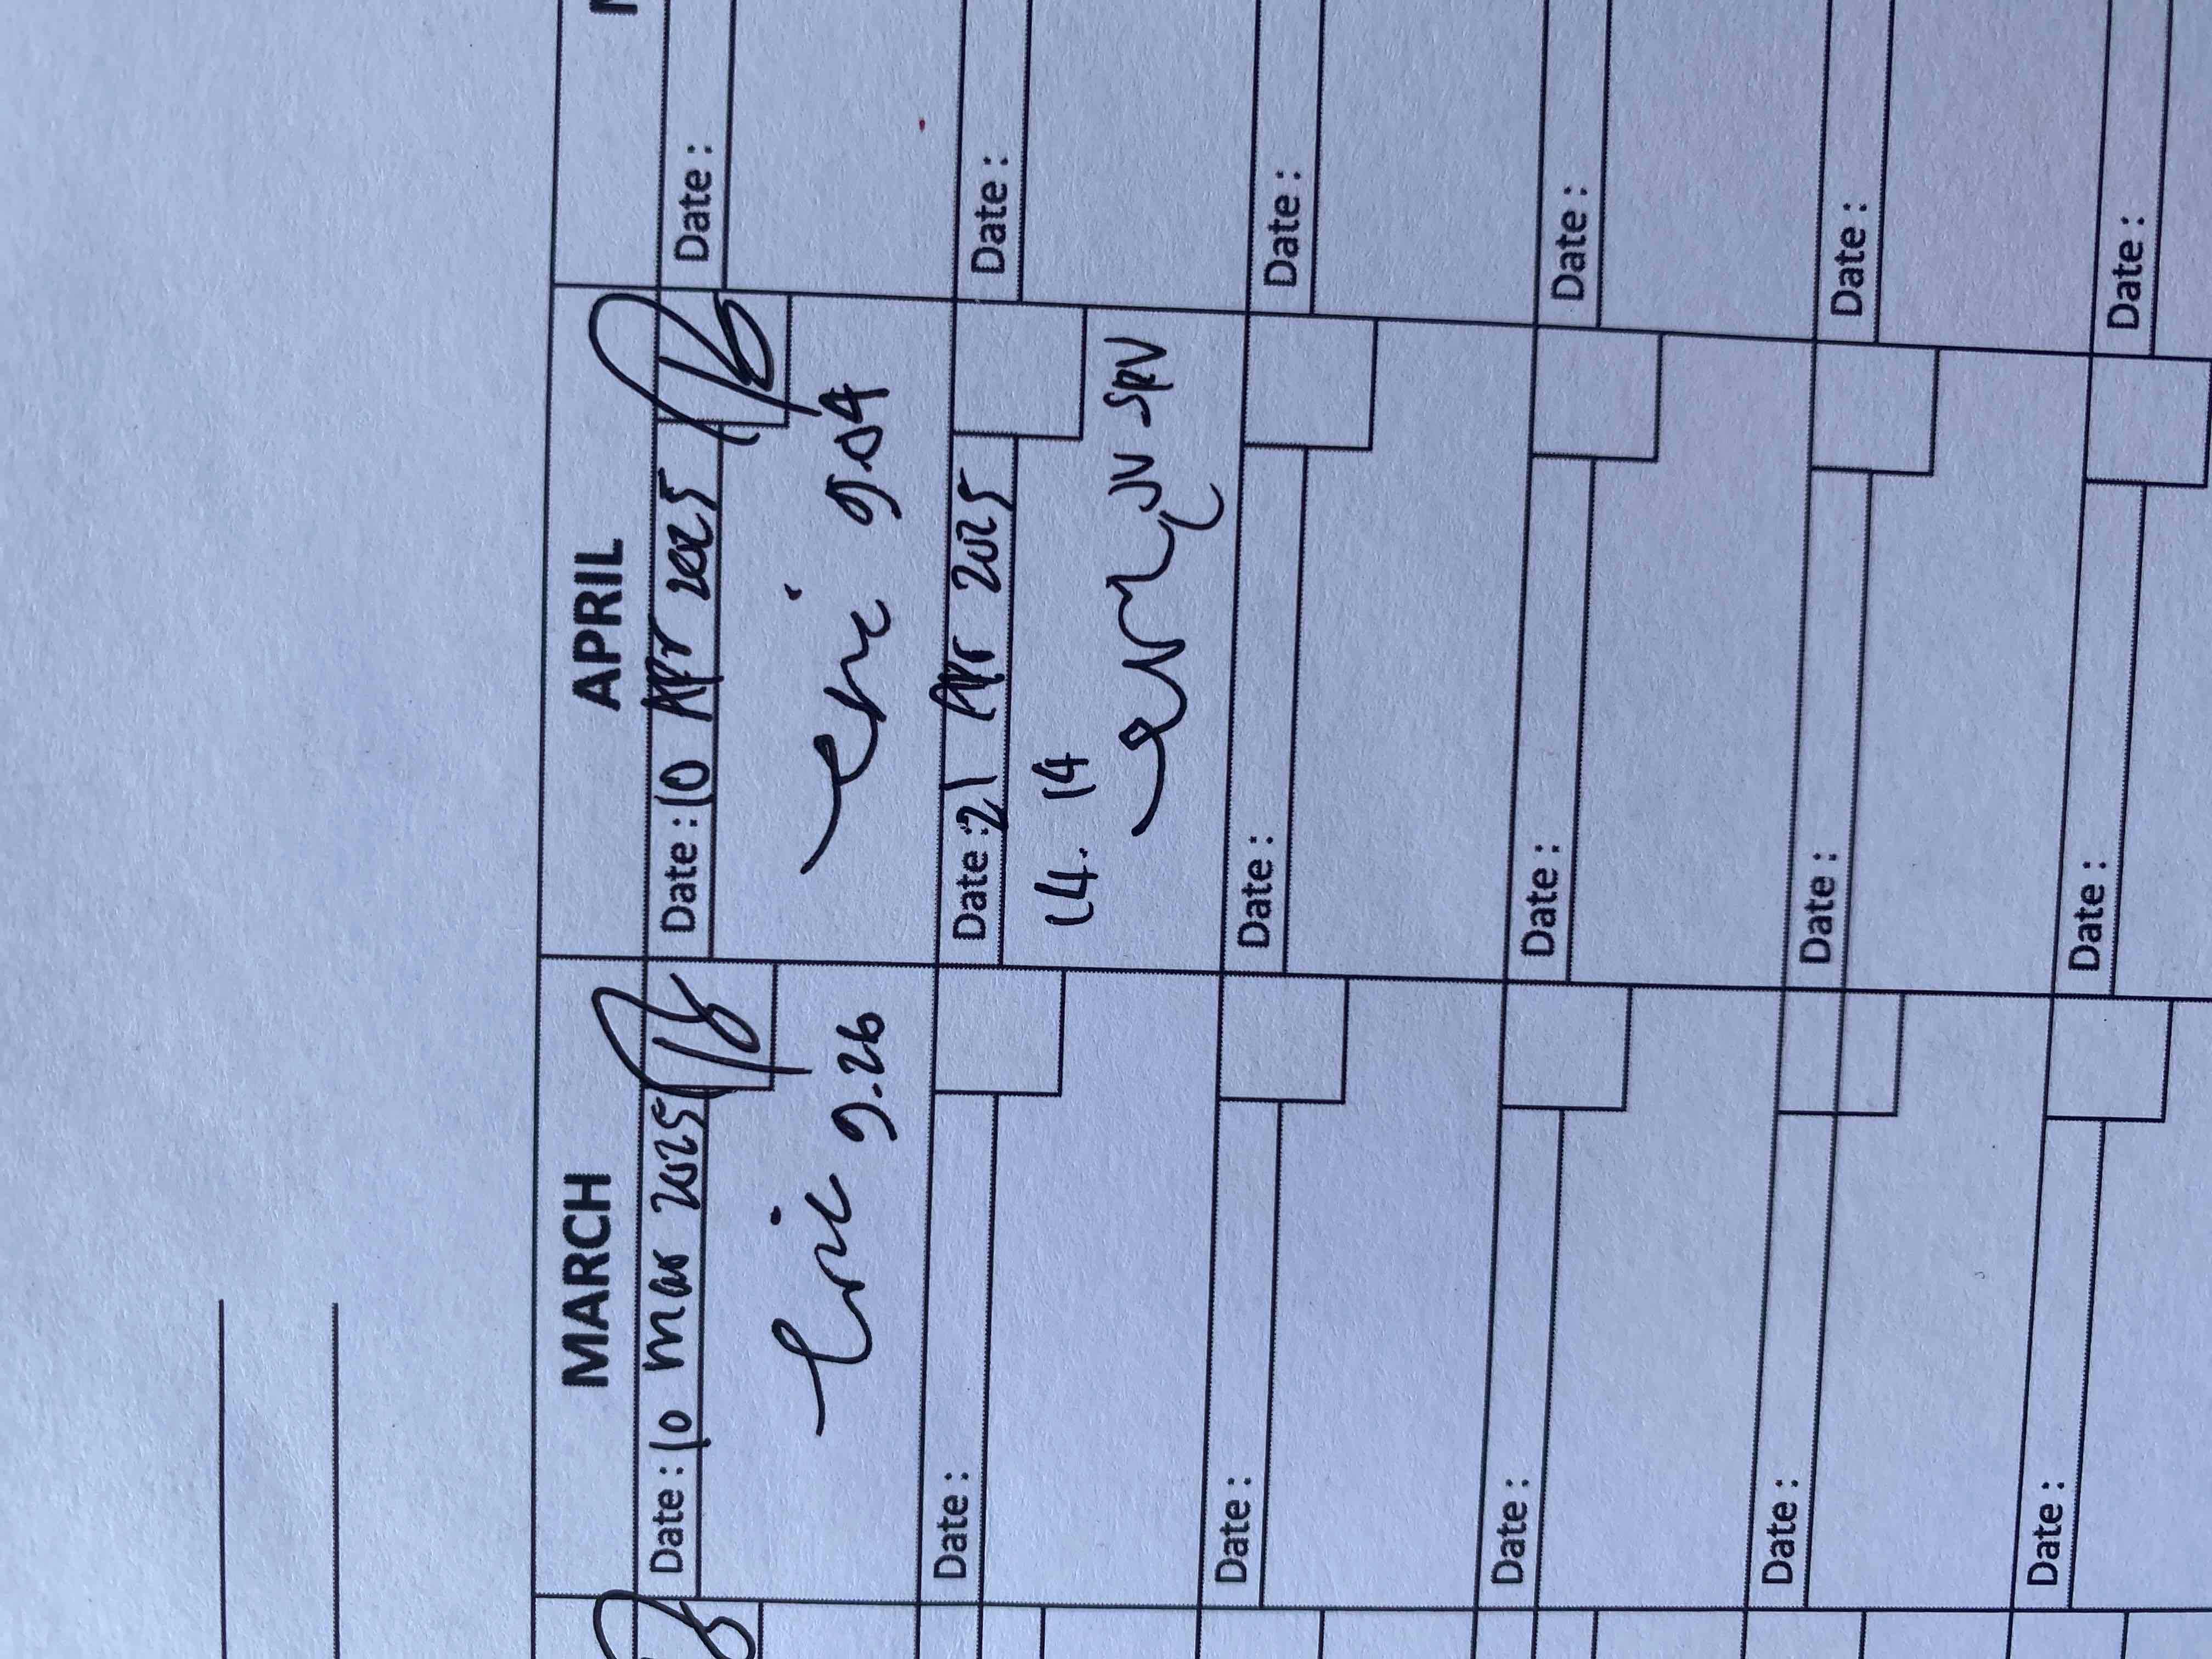 MARCH
Date : 10 mar 2025
eric 9.26
Date :
Date :
Date :
Date :
Date :
APRIL
Date : 10 Apr 2025
eric 9.04
Date : 21 Apr 2025
14. 14
JV SPV
Date :
Date :
Date :
Date :
Date :
Date :
Date :
Date :
Date :
Date :